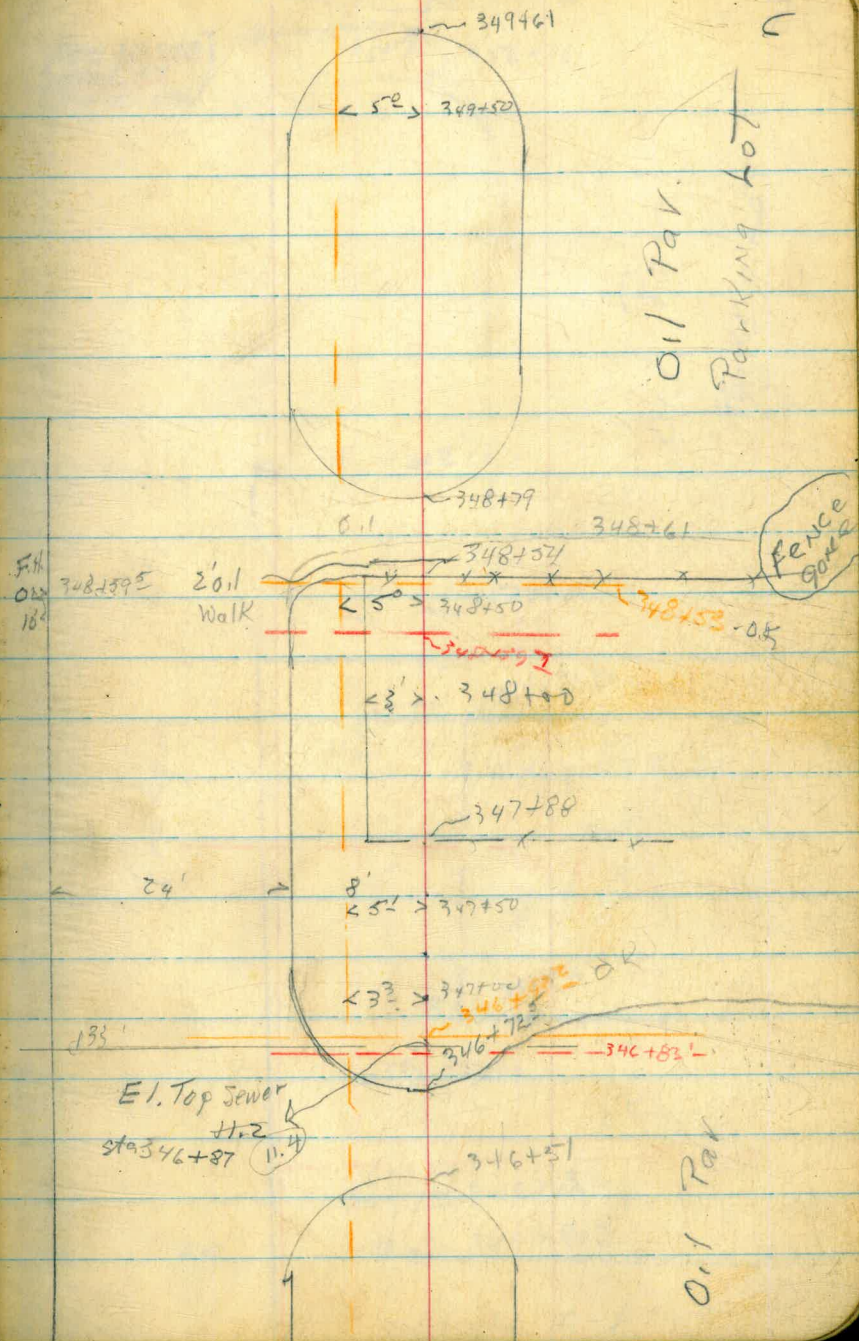 349+61
< 5º > 349+50
Oil Par.
Parking Lot
348+79
Oil
348+61
Fence gone
348+54
F.H.
348+59⁵
2' Oil
Walk
< 5⁰ > 348+50
348+53 - O.K.
< 3' > 348+00
347+88
24'
8'
< 5¹ > 347+50
< 3³ > 347+00
OK
346+72⁵
133'
346+83'
El. Top Sewer
11.2
11.4
sta 346+87
346+51
Oil Par